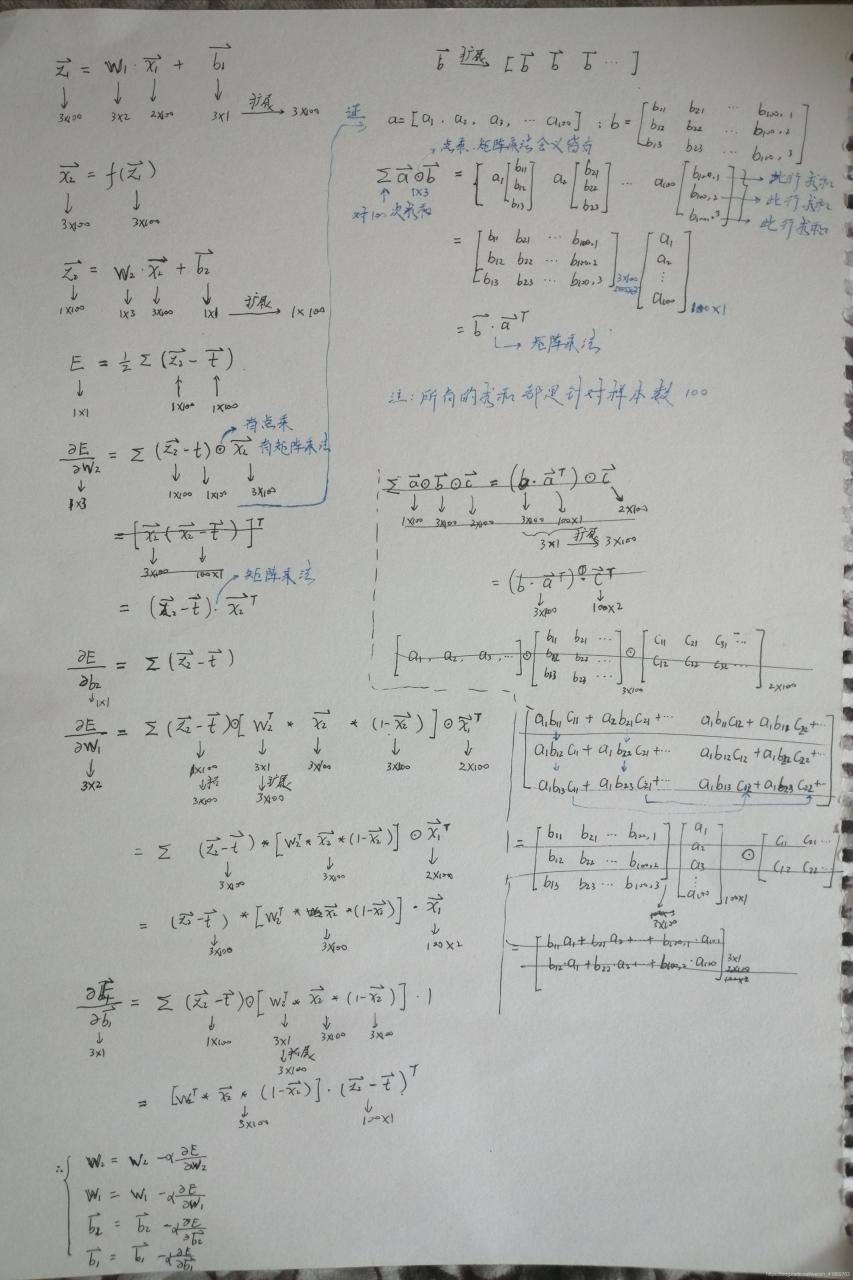 z₁ = W₁ · x₁ + b₁
3×100 3×2 2×100 3×1 扩展 3×100
x₂ = f(z₁)
3×100 3×100
z₂ = W₂ · x₂ + b₂
1×100 1×3 3×100 1×1 扩展 1×100
E = ½ Σ (z₂ - t)
1×1 1×100 1×100
当点乘
∂E/∂W₂ = Σ (z₂ - t) ⊙ x₂ 当矩阵乘法
1×3 1×100 1×100 3×100
= [x₂ (x₂ - t)]ᵀ
3×100 100×1 矩阵乘法
= (z₂ - t) · x₂ᵀ
∂E/∂b₂ = Σ (z₂ - t)
1×1
∂E/∂W₁ = Σ (z₂ - t) ⊙ [W₂ᵀ * x₂ * (1-x₂)] ⊙ x₁ᵀ
3×2 1×100 3×1 3×100 3×100 2×100
扩展
3×100 3×100
= Σ (z₂ - t) * [W₂ᵀ * x₂ * (1-x₂)] ⊙ x₁ᵀ
3×100 3×100 2×100
= (z₂ - t) * [W₂ᵀ * x₂ * (1-x₂)] · x₁
3×100 3×100 100×2
∂E/∂b₁ = Σ (z₂ - t) ⊙ [W₂ᵀ * x₂ * (1-x₂)] · 1
3×1 1×100 3×1 3×100 3×100
扩展
3×100
= [W₂ᵀ * x₂ * (1-x₂)] · (z₂ - t)ᵀ
3×100 100×1
∴ W₂ = W₂ - α ∂E/∂W₂
W₁ = W₁ - α ∂E/∂W₁
b₂ = b₂ - α ∂E/∂b₂
b₁ = b₁ - α ∂E/∂b₁
b 扩展 [b b b ···]
证 a = [a₁ , a₂ , a₃ , ··· a₁₀₀] ; b = [b₁₁ b₂₁ ··· b₁₀₀,₁
b₁₂ b₂₂ ··· b₁₀₀,₂
b₁₃ b₂₃ ··· b₁₀₀,₃]
点乘.矩阵乘法含义皆有
Σ a ⊙ b = [a₁ [b₁₁ b₁₂ b₁₃] a₂ [b₂₁ b₂₂ b₂₃] ··· a₁₀₀ [b₁₀₀,₁ b₁₀₀,₂ b₁₀₀,₃]]
1×3
此行求和
此行求和
此行求和
对100次求和
= [b₁₁ b₂₁ ··· b₁₀₀,₁ [a₁
b₁₂ b₂₂ ··· b₁₀₀,₂ a₂
⋮
b₁₃ b₂₃ ··· b₁₀₀,₃] 3×100 a₁₀₀] 100×1
= b · aᵀ
矩阵乘法
注:所有的求和都是针对样本数100
Σ a ⊙ b ⊙ c = (b · aᵀ) ⊙ c
1×100 3×100 2×100 3×100 100×1 2×100
3×1 扩展 3×100
= (b · aᵀ) ⊙ cᵀ
3×100 100×2
[a₁ , a₂ , a₃ , ···] ⊙ [b₁₁ b₂₁ ··· ⊙ [c₁₁ c₂₁ c₃₁ ···
b₁₂ b₂₂ ··· c₁₂ c₂₂ c₃₂ ···] 2×100
b₁₃ b₂₃ ···] 3×100
[a₁b₁₁c₁₁ + a₂b₂₁c₂₁ + ··· a₁b₁₁c₁₂ + a₁b₁₂c₂₂ + ···
a₁b₁₂c₁₁ + a₁b₂₂c₂₁ + ··· a₁b₁₂c₁₂ + a₁b₂₂c₂₂ + ···
a₁b₁₃c₁₁ + a₁b₂₃c₂₁ + ··· a₁b₁₃c₁₂ + a₁b₂₃c₂₂ + ···]
= [b₁₁ b₂₁ ··· b₁₀₀,₁ [a₁
b₁₂ b₂₂ ··· b₁₀₀,₂ a₂ ⊙ [c₁₁ c₂₁ ···
b₁₃ b₂₃ ··· b₁₀₀,₃] a₃ c₁₂ c₂₂ ···
⋮
3×100 a₁₀₀] 100×1
= [b₁₁a₁ + b₂₁a₂ + ··· + b₁₀₀,₁ · a₁₀₀
b₁₂·a₁ + b₂₂·a₂ + ··· + b₁₀₀,₂ · a₁₀₀] 3×1